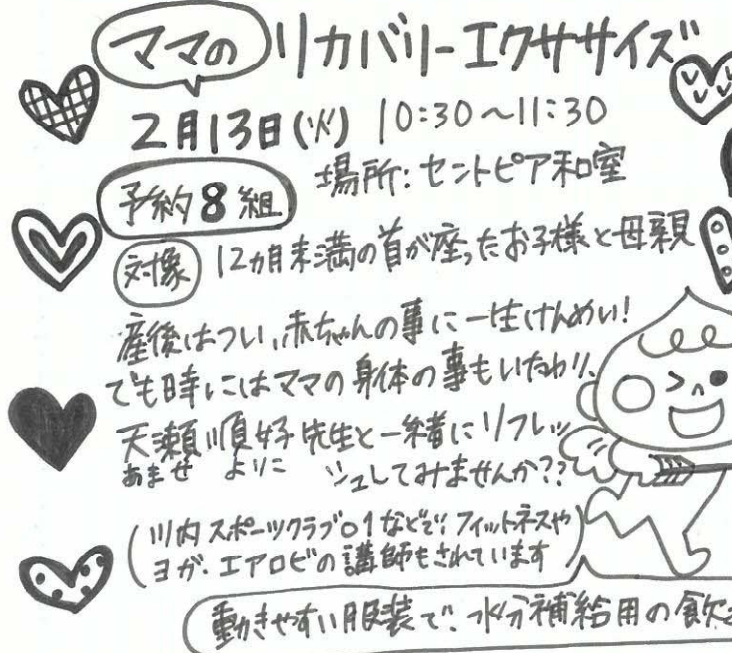 ママの リカバリーエクササイズ
2月13日(火) 10:30～11:30
場所:セントピア和室
予約8組
対象 12カ月未満の首が座ったお子様と母親
産後はつい、赤ちゃんの事に一生けんめい!
でも時にはママの身体の事もいたわり、
天瀬順好先生と一緒にリフレッ
あませ よりこ シュしてみませんか??
(川内スポーツクラブ01などで、フィットネスや
ヨガ・エアロビの講師もされています
動きやすい服装で、水分補給用の飲